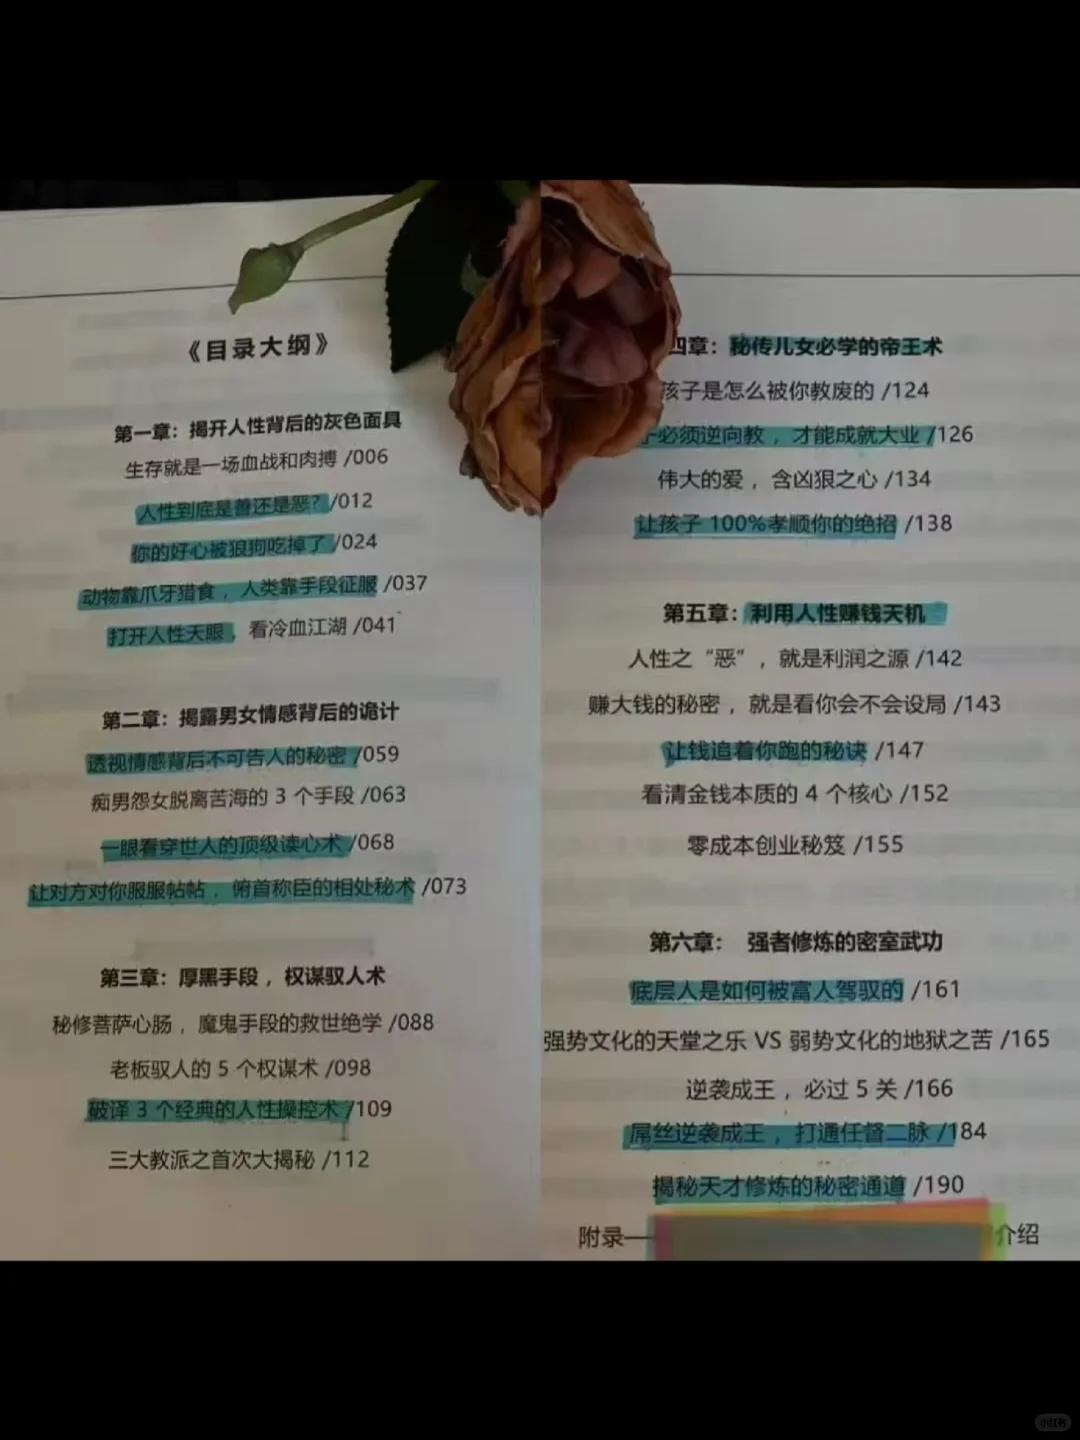 《目录大纲》
第一章：揭开人性背后的灰色面具
生存就是一场血战和肉搏 /006
人性到底是善还是恶？/012
你的好心被狼狗吃掉了 /024
动物靠爪牙猎食，人类靠手段征服 /037
打开人性天眼，看冷血江湖 /041
第二章：揭露男女情感背后的诡计
透视情感背后不可告人的秘密 /059
痴男怨女脱离苦海的 3 个手段 /063
一眼看穿世人的顶级读心术 /068
让对方对你服服帖帖，俯首称臣的相处秘术 /073
第三章：厚黑手段，权谋驭人术
秘修菩萨心肠，魔鬼手段的救世绝学 /088
老板驭人的 5 个权谋术 /098
破译 3 个经典的人性操控术 /109
三大教派之首次大揭秘 /112
四章：秘传儿女必学的帝王术
孩子是怎么被你教废的 /124
子必须逆向教，才能成就大业 /126
伟大的爱，含凶狠之心 /134
让孩子 100%孝顺你的绝招 /138
第五章：利用人性赚钱天机
人性之“恶”，就是利润之源 /142
赚大钱的秘密，就是看你会不会设局 /143
让钱追着你跑的秘诀 /147
看清金钱本质的 4 个核心 /152
零成本创业秘笈 /155
第六章： 强者修炼的密室武功
底层人是如何被富人驾驭的 /161
强势文化的天堂之乐 VS 弱势文化的地狱之苦 /165
逆袭成王，必过 5 关 /166
屌丝逆袭成王，打通任督二脉 /184
揭秘天才修炼的秘密通道 /190
附录—
介绍
小红书